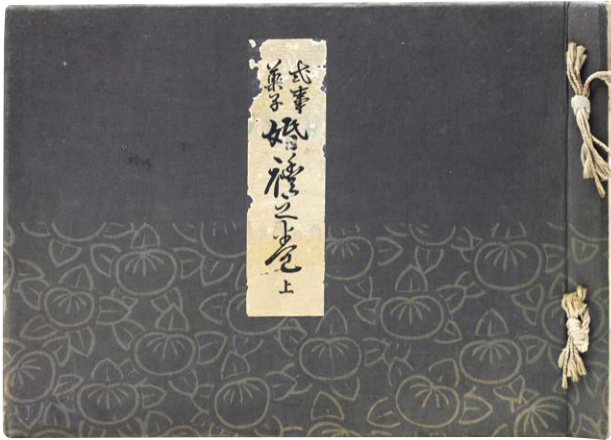 式事
菓子
婚禮之巻
上